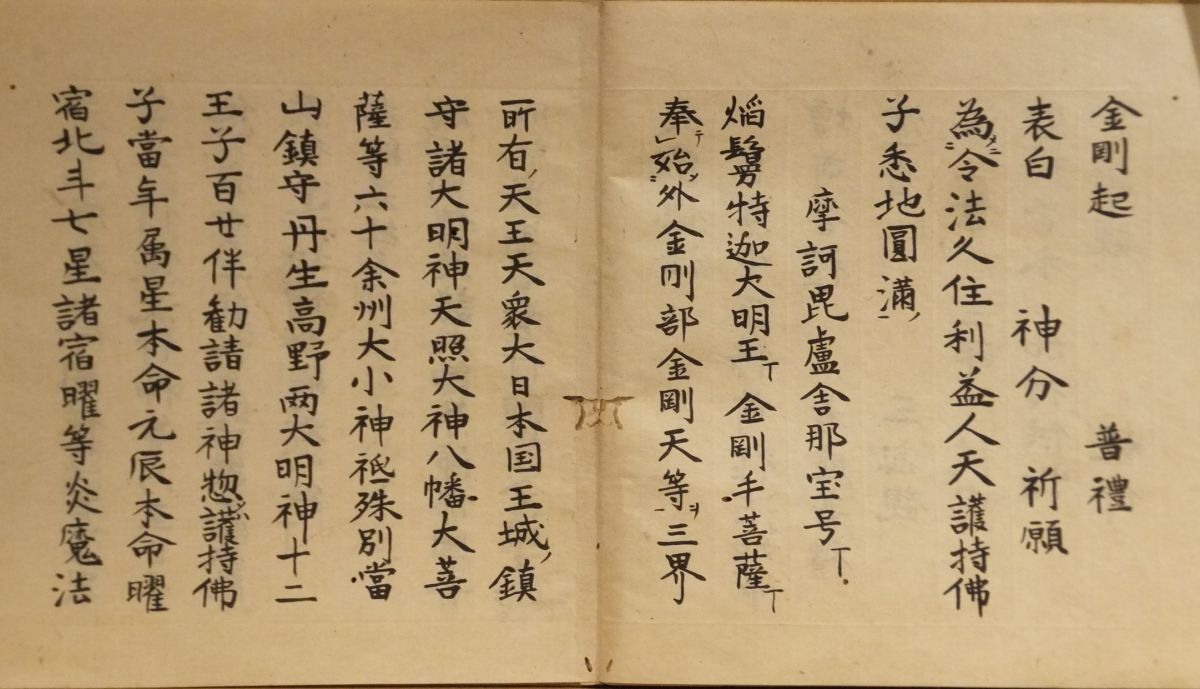 金剛起 普禮
表白 神分 祈願
為令法久住利益人天護持佛
子悉地圓滿
摩訶毘盧舍那宝号丁
焔鬘特迦大明王丁 金剛手菩薩丁
奉始外金剛部金剛天等ヲ三界
所有天王天衆大日本国王城鎮
守諸大明神天照大神八幡大菩
薩等六十余州大小神祇殊別當
山鎮守丹生高野两大明神十二
王子百廿伴勧請諸神惣護持佛
子當年属星本命元辰本命曜
宿北斗七星諸宿曜等炎魔法